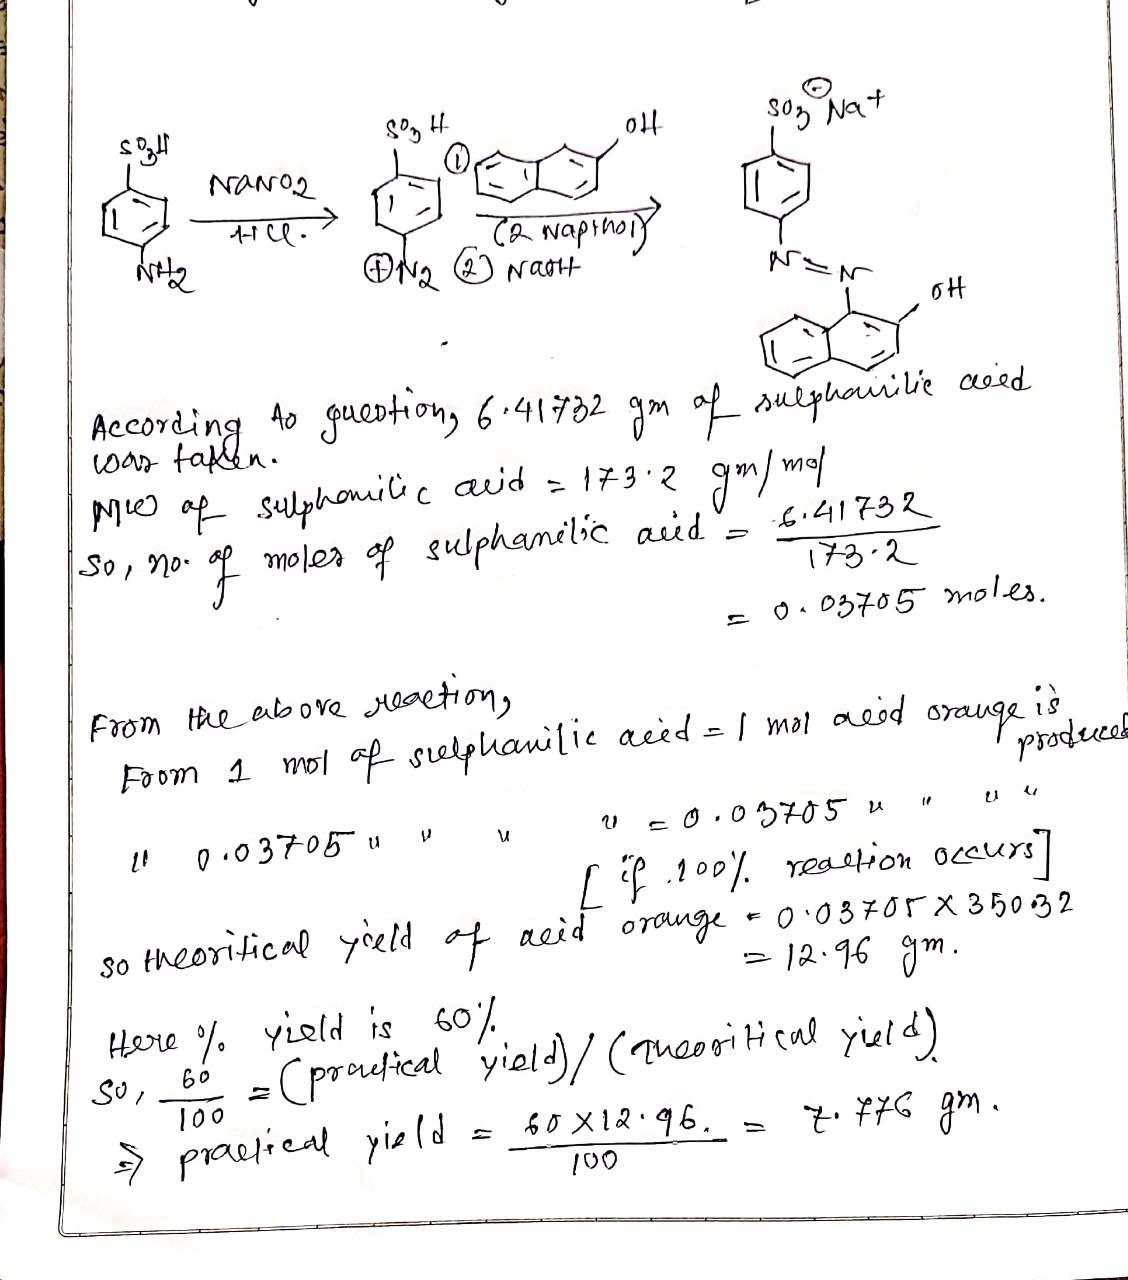 SO3H
NaNO2
HCl.
NH2
SO3H
⊕N2
① OH
(2 Napthol)
② NaOH
SO3⊖ Na+
N=N
OH
According to question, 6.41732 gm of sulphanilic acid
was taken.
MW of sulphanilic acid = 173.2 gm/mol
So, no. of moles of sulphanilic acid = 6.41732 / 173.2
= 0.03705 moles.
From the above reaction,
From 1 mol of sulphanilic acid = 1 mol acid orange is produced
" 0.03705 " " " " = 0.03705 " " " "
[if 100% reaction occurs]
So theoritical yield of acid orange = 0.03705 X 350.32
= 12.96 gm.
Here % yield is 60%
So, 60/100 = (practical yield)/(Theoritical yield)
⇒ practical yield = 60 X 12.96. / 100 = 7.776 gm.